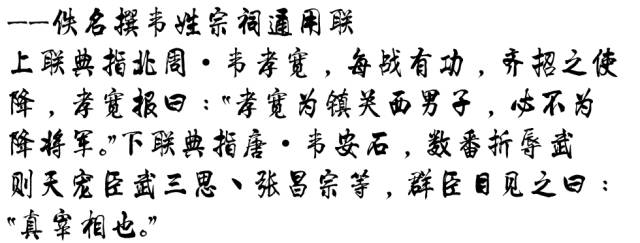 ——佚名撰韦姓宗祠通用联
上联典指北周·韦孝宽，每战有功，齐招之使
降，孝宽报曰：“孝宽为镇关西男子，必不为
降将军。”下联典指唐·韦安石，数番折辱武
则天宠臣武三思、张昌宗等，群臣目见之曰：
“真宰相也。”